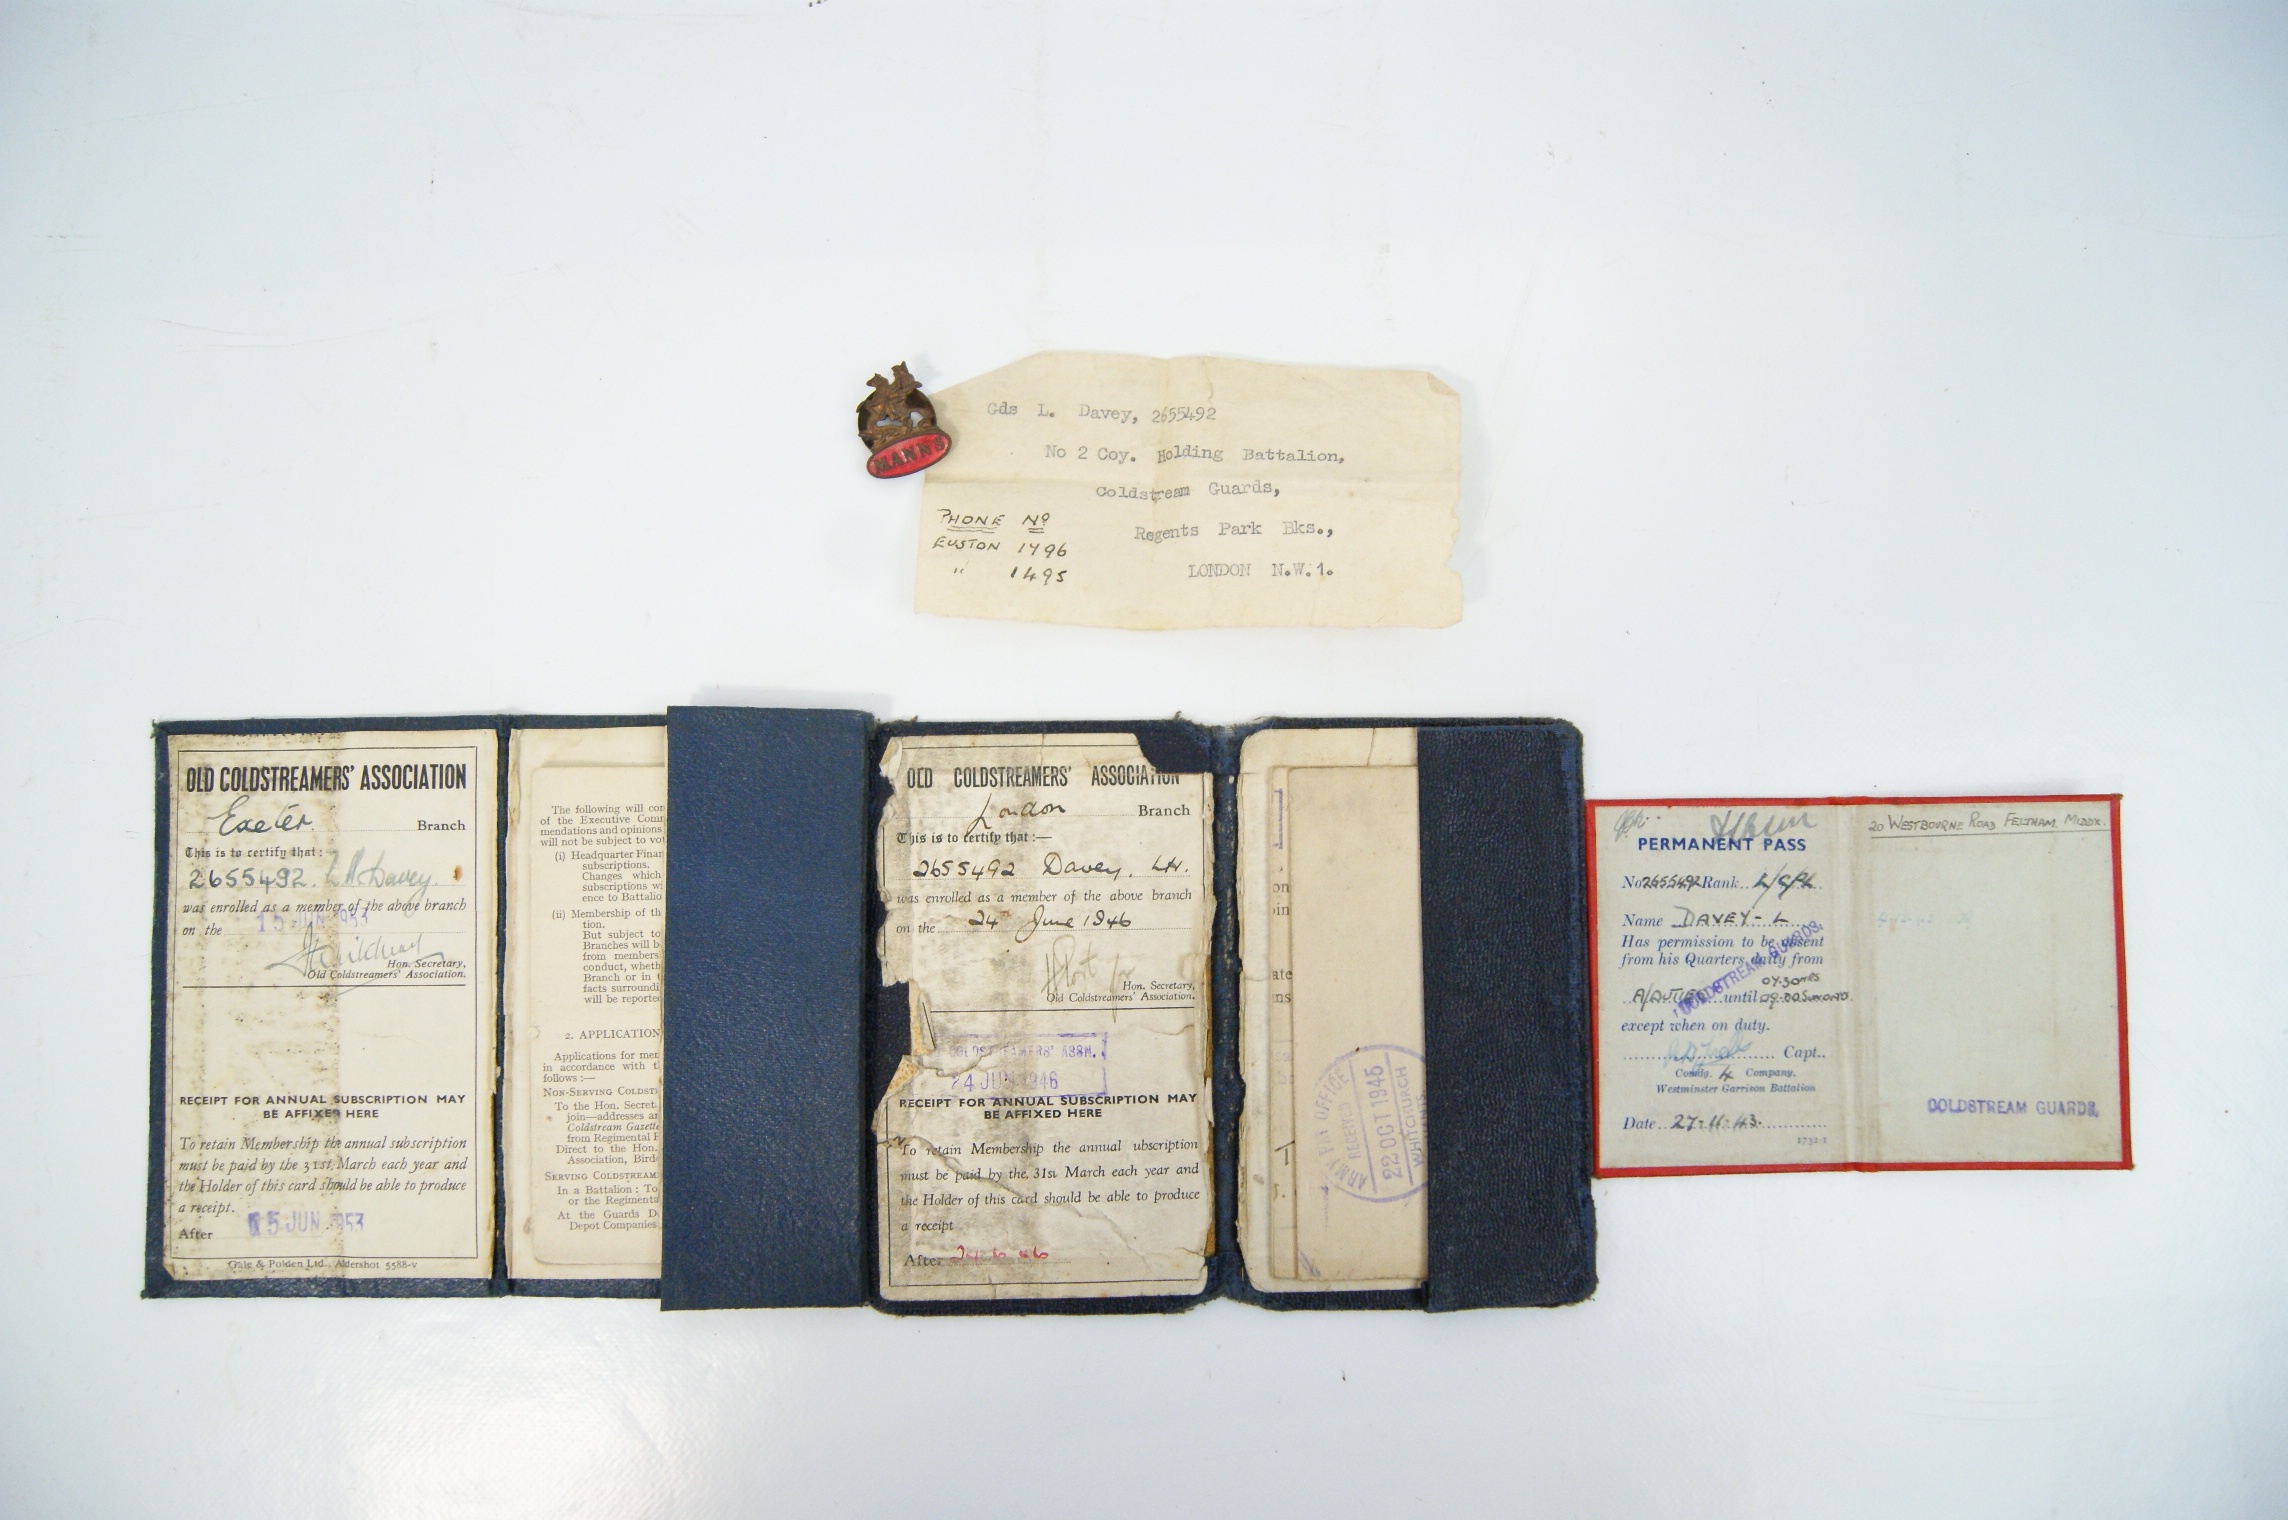 MANNS
Gds L. Davey, 2655492
No 2 Coy. Holding Battalion,
Coldstream Guards,
Regents Park Bks.,
LONDON N.W.1.
PHONE No
EUSTON 1496
" 1495
OLD COLDSTREAMERS' ASSOCIATION
Exeter Branch
This is to certify that:
2655492. L H Davey.
was enrolled as a member of the above branch
on the 15 JUN 1953
Hon. Secretary,
Old Coldstreamers' Association.
RECEIPT FOR ANNUAL SUBSCRIPTION MAY
BE AFFIXED HERE
To retain Membership the annual subscription
must be paid by the 31st March each year and
the Holder of this card should be able to produce
a receipt.
After 15 JUN 1953
Gale & Polden Ltd., Aldershot 5588-v
The following will con
of the Executive Com
mendations and opinions
will not be subject to vo
(i) Headquarter Finan
subscriptions.
Changes which
subscriptions wi
ence to Battalio
(ii) Membership of th
tion.
But subject to
Branches will b
from members
conduct, wheth
Branch or in t
facts surroundi
will be reported
2. APPLICATION
Applications for mem
in accordance with t
follows :—
NON-SERVING COLDST
To the Hon. Secret
join—addresses ar
Coldstream Gazette
from Regimental H
Direct to the Hon.
Association, Bird
SERVING COLDSTREAM
In a Battalion : To
or the Regimenta
At the Guards D
Depot Companies
OLD COLDSTREAMERS' ASSOCIATION
London Branch
This is to certify that :—
2655492 Davey. L.H.
was enrolled as a member of the above branch
on the 24 June 1946
Hon. Secretary,
Old Coldstreamers' Association.
COLDSTREAMERS' ASSN.
24 JUN 1946
RECEIPT FOR ANNUAL SUBSCRIPTION MAY
BE AFFIXED HERE
To retain Membership the annual ubscription
must be paid by the 31st March each year and
the Holder of this card should be able to produce
a receipt
After 24 6 46
on
in
ate
ms
ARMY PAY OFFICE
RECEIVED
22 OCT 1945
WHITCHURCH
HANTS.
PERMANENT PASS
No 2655492 Rank L/CPL
Name DAVEY - L
Has permission to be absent
from his Quarters daily from
07.30 HRS
A/DUTIES until 09.00 SUNDAYS.
except when on duty.
Capt..
Comdg. 4 Company,
Westminster Garrison Battalion
Date 27-11-43.
1732-1
COLDSTREAM GUARDS.
20 WESTBOURNE ROAD FELTHAM. MIDDX.
COLDSTREAM GUARDS.